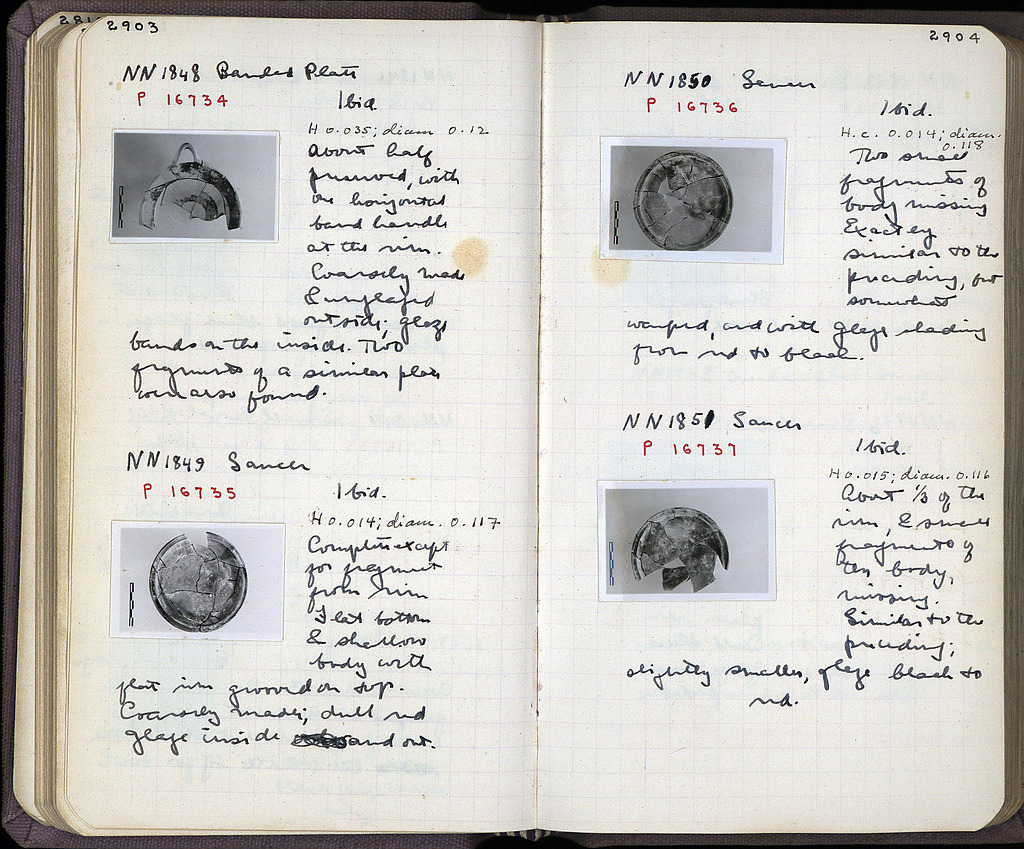 2903
NN 1848 Banded Plate
P 16734
Ibid.
H 0.035; diam 0.12
About half
preserved, with
one horizontal
band handle
at the rim.
Coarsely made
& unglazed
outside; glaze
bands on the inside. Two
fragments of a similar plate
were also found.
NN 1849 Saucer
P 16735
Ibid.
H 0.014; diam. 0.117
Complete except
for fragment
from rim
Flat bottom
& shallow
body with
flat rim grooved on top.
Coarsely made; dull red
glaze inside and out.
2904
NN 1850 Saucer
P 16736
Ibid.
H.c. 0.014; diam.
0.118
Two small
fragments of
body missing
Exactly
similar to the
preceding, but
somewhat
warped, and with glaze shading
from red to black.
NN 1851 Saucer
P 16737
Ibid.
H 0.015; diam. 0.116
About 1/3 of the
rim, & small
fragments of
the body,
missing.
Similar to the
preceding;
slightly smaller, glaze black to
red.